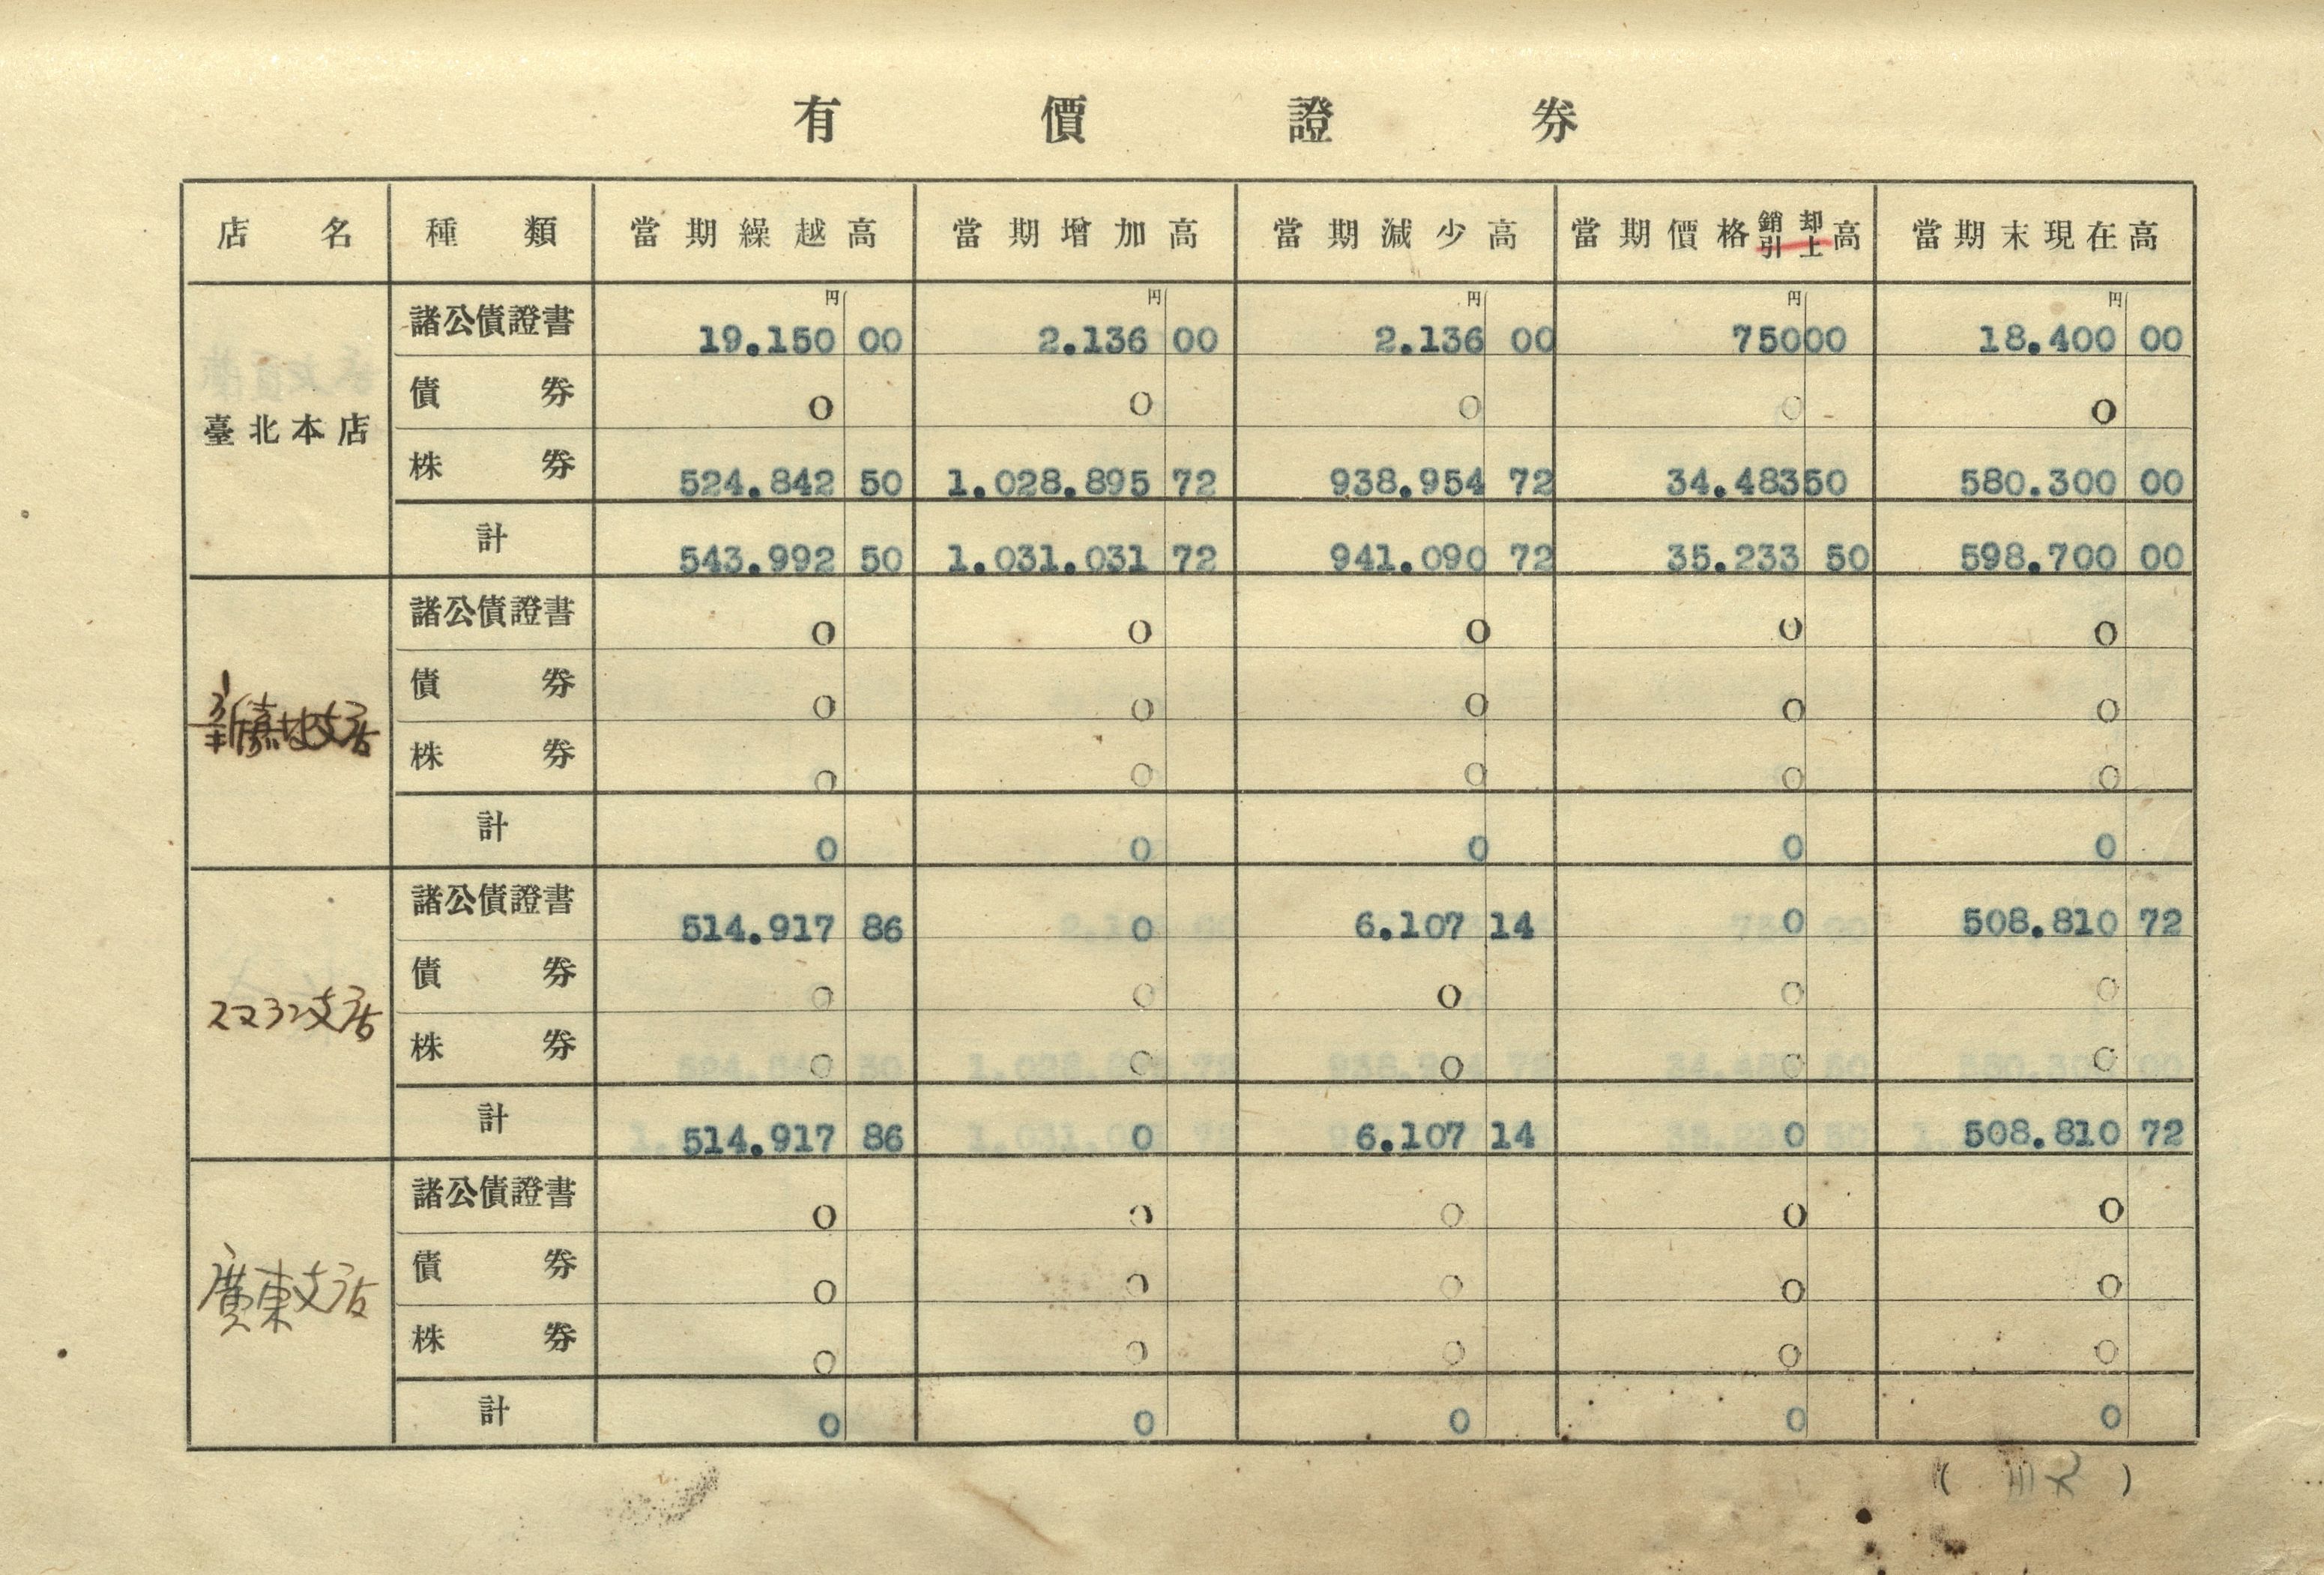 有價證券
店名 種類 當期繰越高 當期增加高 當期減少高 當期價格銷却引上高 當期末現在高
円 円 円 円 円
臺北本店
諸公債證書 19.150 00 2.136 00 2.136 00 750 00 18.400 00
債券 0 0 0 0 0
株券 524.842 50 1.028.895 72 938.954 72 34.483 50 580.300 00
計 543.992 50 1.031.031 72 941.090 72 35.233 50 598.700 00
新嘉坡支店
諸公債證書 0 0 0 0 0
債券 0 0 0 0 0
株券 0 0 0 0 0
計 0 0 0 0 0
スマラン支店
諸公債證書 514.917 86 0 6.107 14 0 508.810 72
債券 0 0 0 0 0
株券 0 0 0 0 0
計 514.917 86 0 6.107 14 0 508.810 72
廣東支店
諸公債證書 0 0 0 0 0
債券 0 0 0 0 0
株券 0 0 0 0 0
計 0 0 0 0 0